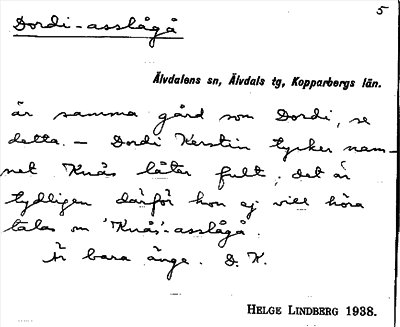 5
Dordi-asslågå
Älvdalens sn, Älvdals tg, Kopparbergs län.
är samma gård som Dordi, se
detta. – Dordi Kerstin tycker nam-
net Knås låter fult, det är
tydligen därför hon ej vill höra
talas om 'Knås'-asslågå.
Är bara änge. D. K.
HELGE LINDBERG 1938.